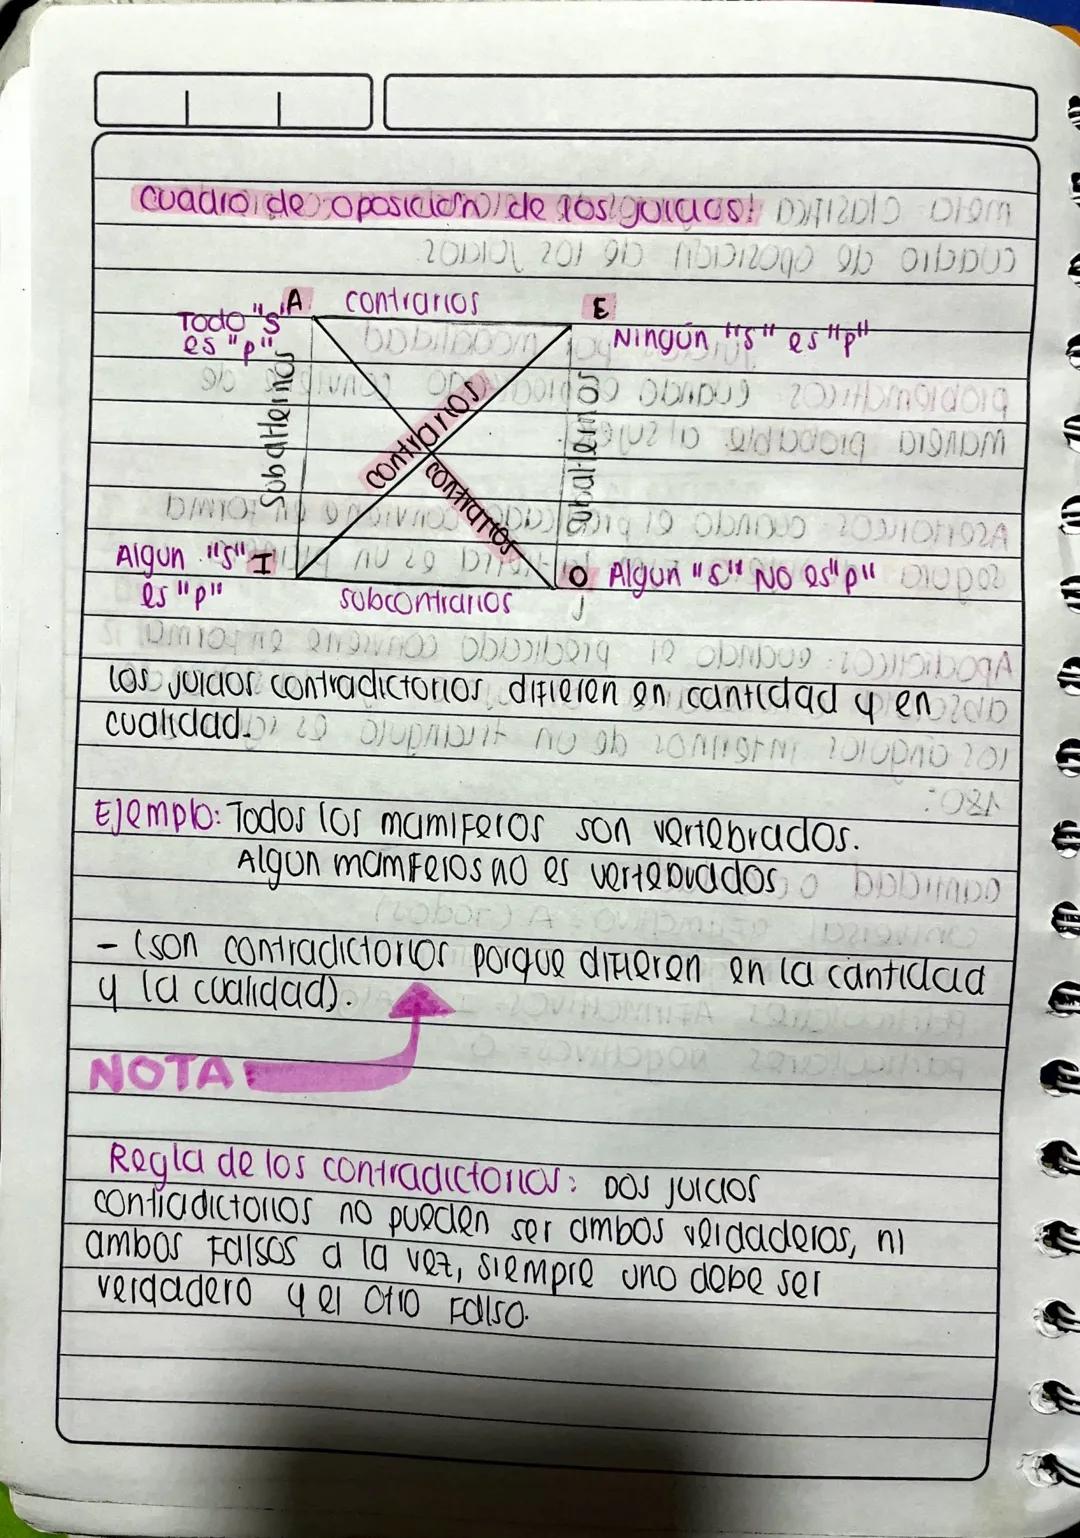 cuadro de oposicion de los juicios:
A contrarios E
Todo "S"
es "p"
Ningún "s" es "p"
Subalternos
contrarios
contrarios
subalternos
Algun "s" I
es "p"
subcontrarios
O Algun "s" NO es "p"
los juicios contradictorios difieren en cantidad y en
cualidad.
Ejemplo: Todos los mamiferos son vertebrados.
Algun mamferos no es vertebrados
- (son contradictorios porque difieren en la cantidad
y la cualidad).
NOTA
Regla de los contradictorios: Dos juicios
contradictorios no pueden ser ambos verdaderos, ni
ambos Falsos a la vez, siempre uno debe ser
verdadero y el otro Falso.